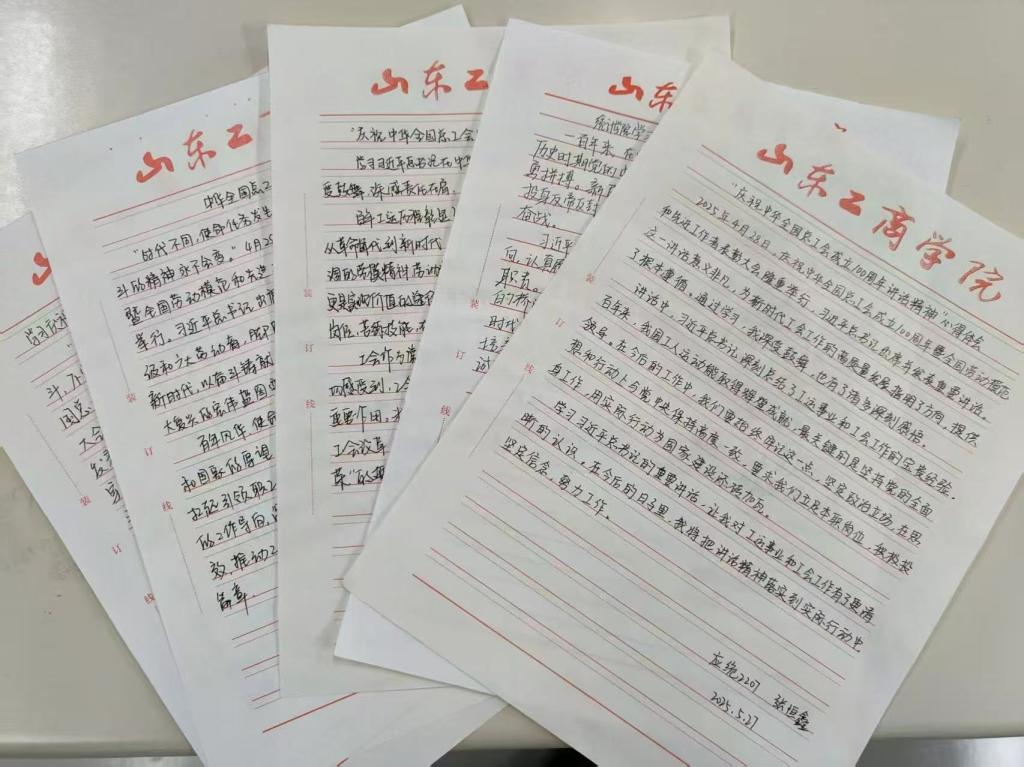 山东工商学院
"庆祝中华全国总工会成立100周年讲话精神"心得体会
2025年4月28日,庆祝中华全国总工会成立100周年暨全国劳动模范
和先进工作者表彰大会隆重举行,习近平总书记出席并发表重要讲话。
这一讲话意义非凡,为新时代工会工作的高质量发展指明了方向,提供
了根本遵循。通过学习,我深受鼓舞,也有了诸多深刻感悟。
讲话中,习近平总书记深刻总结了工运事业和工会工作的宝贵经验。
百年来,我国工人运动能取得辉煌成就,最关键的是坚持党的全面
领导。在今后的工作中,我们要始终牢记这一点,坚定政治立场,在思
想和行动上与党中央保持高度一致。要求我们立足本职岗位,积极投
身工作,用实际行动为国家建设添砖加瓦。
学习习近平总书记的重要讲话,让我对工运事业和工会工作有了更清
晰的认识,在今后的日子里,我将把讲话精神落实到实际行动中
坚定信念,努力工作。
应统2207 张恒鑫
2025.5.27
山东
一百年来,在
历史时期党的
勇拼搏。
投身反帝反封
奋战。
习近平
向,认真
职责。
时代
山东工
"庆祝中华全国总工会
学习习近平总书记在
受鼓舞,深感责任在肩。
从革命年代到新时代
调的劳模精神劳动
岗位,苦练技能,
工会作为
四感受到,工会
重要作用。
工会改革
装
订
线
山东工
中华全国总工
"时代不同,使命任务发生
斗的精神永不会变。"4月28
暨全国劳动模范和先进
举行。习近平总书记出席
记和广大劳动者,
新时代,以奋斗铸就
大复兴的宏伟蓝图
百年风华,使命
和国家的厚望
旗帜引领职工
的工作导向,
效,推动工
篇章。
装
订
线
山
学习习近
斗,
国总
大会
发
装
订
线